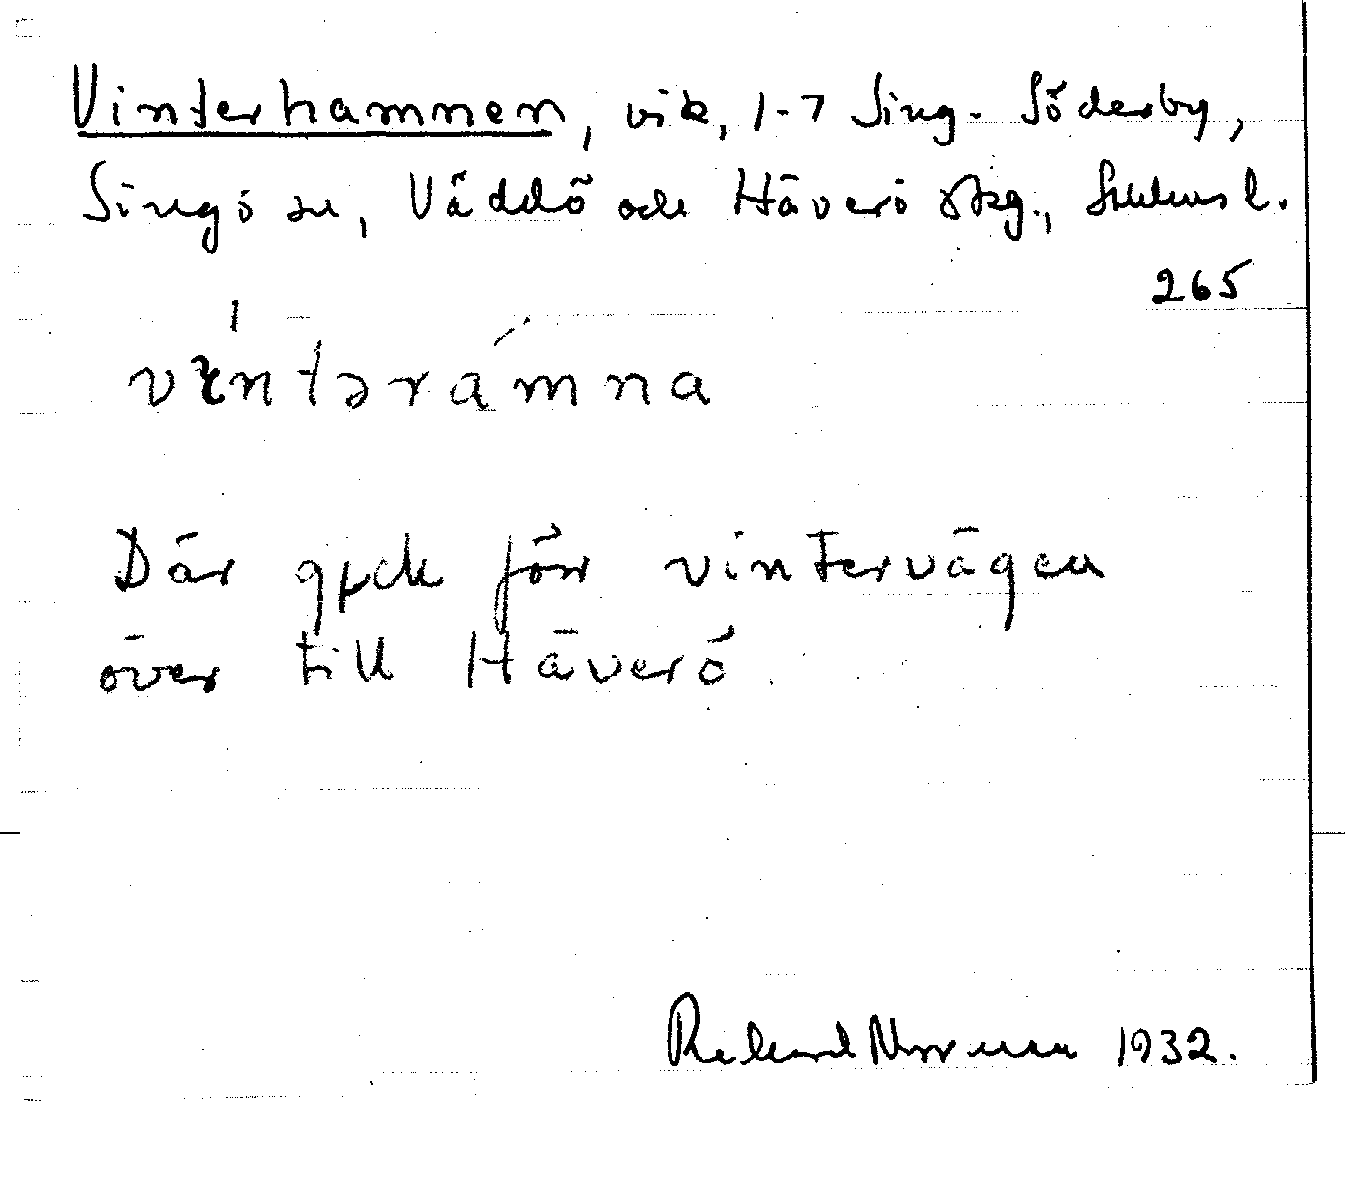 Vinterhamnen, vik, 1-7 Sing-Söderby,
Singö sn, Väddö och Häverö skg., Sthlms l.
265
vintərámna
Där gick förr vintervägen
över till Häverö.
Rickard Norrman 1932.